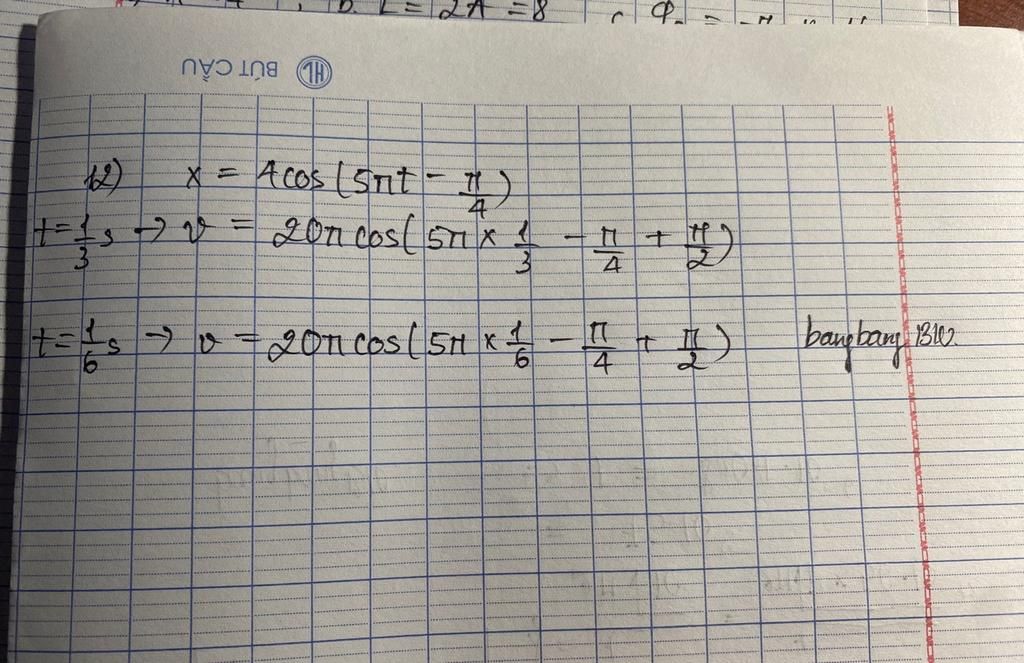 D. L = 2A = 8
BÚT CẦU HL
12) x = 4cos(5πt - π/4)
t = 1/3 s → v = 20π cos(5π × 1/3 - π/4 + π/2)
t = 1/6 s → v = 20π cos(5π × 1/6 - π/4 + π/2) bangbang